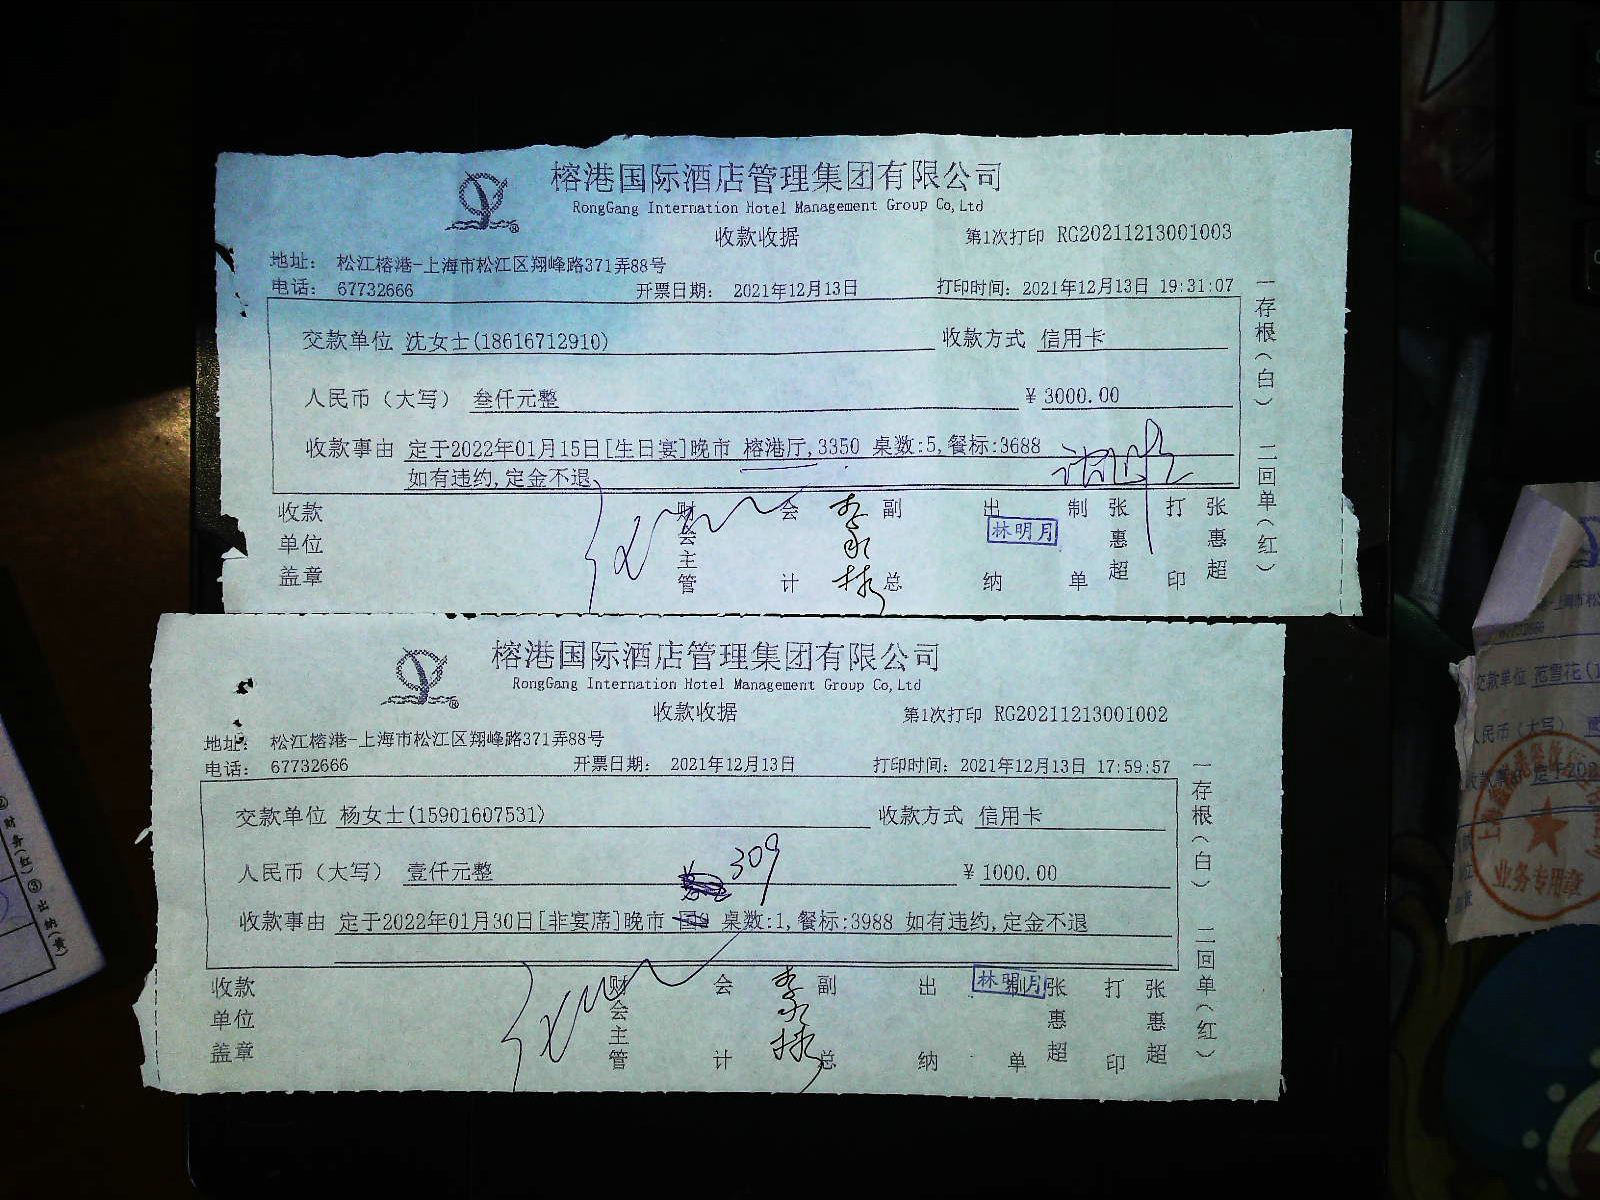 榕港国际酒店管理集团有限公司
RongGang Internation Hotel Management Group Co,Ltd
收款收据 第1次打印 RG20211213001003
地址: 松江榕港-上海市松江区翔峰路371弄88号
电话: 67732666 开票日期: 2021年12月13日 打印时间: 2021年12月13日 19:31:07
交款单位 沈女士(18616712910) 收款方式 信用卡
人民币（大写） 叁仟元整 ¥ 3000.00
收款事由 定于2022年01月15日[生日宴]晚市 榕港厅,3350 桌数:5,餐标:3688
如有违约,定金不退
收款单位盖章 财会主管 会计 副总 出纳 林明月 制单 张惠超 打印 张惠超
一存根(白) 二回单(红)
榕港国际酒店管理集团有限公司
RongGang Internation Hotel Management Group Co,Ltd
收款收据 第1次打印 RG20211213001002
地址: 松江榕港-上海市松江区翔峰路371弄88号
电话: 67732666 开票日期: 2021年12月13日 打印时间: 2021年12月13日 17:59:57
交款单位 杨女士(15901607531) 收款方式 信用卡
309
人民币（大写） 壹仟元整 ¥ 1000.00
收款事由 定于2022年01月30日[非宴席]晚市 桌数:1,餐标:3988 如有违约,定金不退
收款单位盖章 财会主管 会计 副总 出纳 林明月 制单 张惠超 打印 张惠超
一存根(白) 二回单(红)
②财务(红)③出纳(黄)
-上海市松
67732666
交款单位 范雪花(1
人民币（大写）
定于202
业务专用章